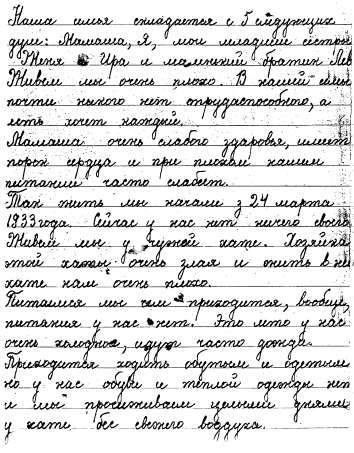 Наша семья складается с 5 следующих
душ: Мамаша, Я, мои младшие сестры
Женя Ира и маленький братик Лев
Живем мы очень плохо. В нашей семье
почти ныкого нет отрудаспособного, а
есть хочет каждый.
Мамаша очень слабого здоровья, имеет
порок сердца и при плохом нашем
питании часто слабеет.
Так жить мы начали з 24 марта
1933 года. Сейчас у нас нет ничего своего
Живем мы у чужой хате. Хозяйка
этой хаты очень злая и жить в не
хате нам очень плохо.
Питаимся мы чем приходится, вообще,
питания у нас нет. Это лето у нас
очень холодное, идут часто дожда.
Приходится ходить обутым и одетым
но у нас обуви и теплой одежды нет
и мы просиживаем целыми днями
у хате без свежего воздуха.